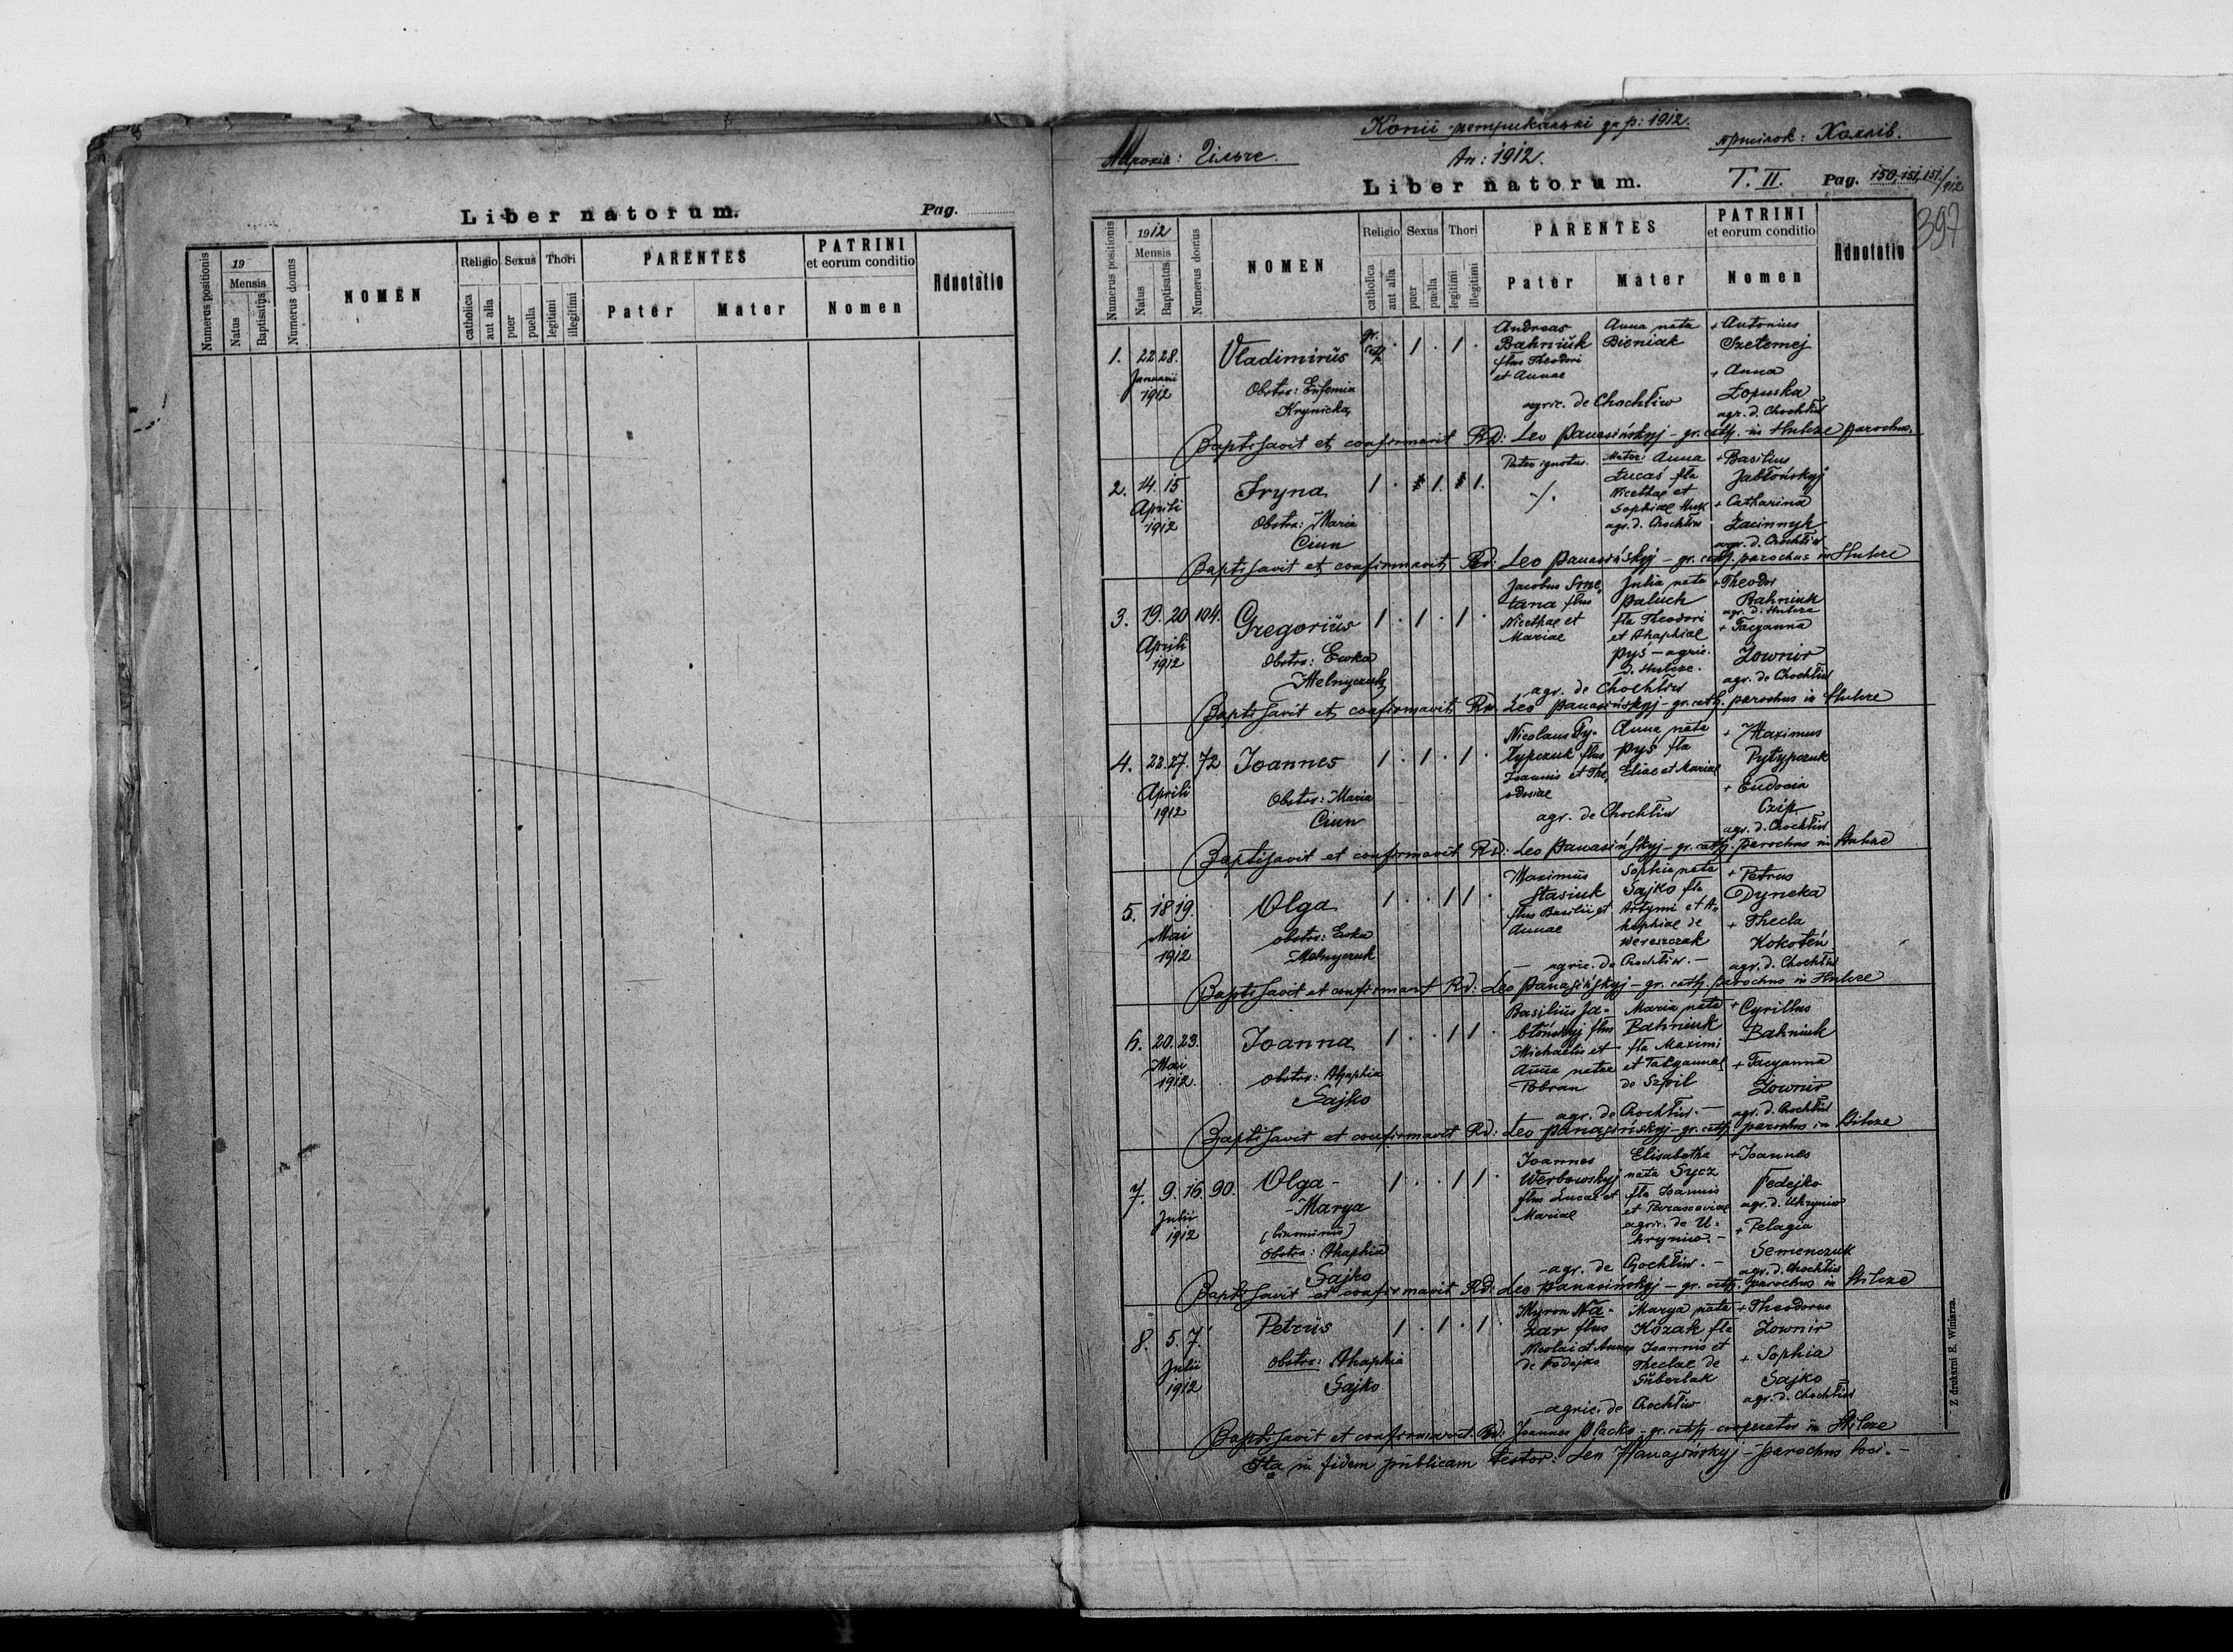 Liber natorum.
Pag.
Numerus positionis
19
Mensis
Natus
Baptisatus
Numerus domus
NOMEN
Religio
catholica
aut alia
Sexus
puer
puella
Thori
legitimi
illegitimi
PARENTES
Pater
Mater
PATRINI
et eorum conditio
Nomen
Adnotatio
Копії метрикальні за р: 1912.
Парохія: Гільче.
An: 1912.
присілок: Хохлів.
Liber natorum.
T. II.
Pag. 150, 151, 151/912
397
Numerus positionis
1912
Mensis
Natus
Baptisatus
Numerus domus
NOMEN
Religio
catholica
aut alia
Sexus
puer
puella
Thori
legitimi
illegitimi
PARENTES
Pater
Mater
PATRINI
et eorum conditio
Nomen
Adnotatio
1. 22 28.
Januarii
1912
Vladimirus
Obstr: Eufemia
Krynicka
gr.
cath.
· 1 · 1 ·
Andreas
Bahniuk
flius Theodori
et Annae
Anna nata
Bieniak
agric. de Chochłiw
+ Antonius
Szetemej
+ Anna
Łopuska
agr. d. Chochłiw
Baptisavit et confirmavit Rd: Leo Panasińskyj - gr. cath. in Hulcze parochus.
2. 14. 15
Aprili
1912
Iryna
Obstr: Maria
Ciun
1 · 1. 1.
Pater ignotus.
-/.
Mater: Anna
Łucaś fla
Nicethae et
Sophiae
agr. d. Chochłiw
+ Basilius
Jabłońskyj
+ Catharina
Łacinnyk
agr. d. Chochłiw
Baptisavit et confirmavit Rd: Leo Panasińskyj - gr. cath. parochus in Hulcze
3. 19. 20 104.
Aprili
1912
Gregorius
Obstr: Ewka
Melnyczuk
1 · 1 · 1 ·
Jacobus Sme-
tana flius
Nicethae et
Mariae
Julia nata
Paluch
fla Theodori
et Ahaphiae
Pyś - agric.
d. Hulcze.
agr. de Chochłiw
+ Theodor
Bahniuk
agr. d. Hulcze
+ Tacyanna
Żownir
agr. de Chochłiw
Baptisavit et confirmavit Rd. Leo Panasińskyj - gr. cath. parochus in Hulcze
4. 22. 27. 72
Aprili
1912
Joannes
Obstr: Maria
Ciun
1 · 1 · 1 ·
Nicolaus Py-
łypczuk flius
Joannis et The-
odosiae
Anna nata
Pyś fla
Eliae et Mariae
agr. de Chochłiw
+ Maximus
Pyłypczuk
+ Eudocia
Czip
agr. d. Chochłiw
Baptisavit et confirmavit Rd: Leo Panasińskyj - gr. cath. parochus in Hulcze
5. 18 19.
Mai
1912
Olga
obstr: Ewka
Melnyczuk
1 · · 1 1 ·
Maximus
Stasiuk
flius Basilii et
Annae
Sophia nata
Sajko fla
Artymi et A-
haphiae de
Wereszczak
- agric. de Chochłiw. -
+ Petrus
Dyneka
+ Thecla
Kokoteń
agr. d. Chochłiw
Baptisavit et confirmavit Rd: Leo Panasińskyj - gr. cath. parochus in Hulcze
6. 20. 23.
Mai
1912.
Joanna
obstr: Ahaphia
Sajko
1 · · 1 1 ·
Basilius Ja-
błońskyj flius
Michaelis et
Anna natae
Pobran
Maria nata
Bahniuk
fla Maximi
et Tatyannae
de Szpil
agr. de Chochłiw. -
+ Cyrillus
Bahniuk
+ Tacyanna
Żownir
agr. d. Chochłiw
Baptisavit et confirmavit Rd: Leo Panasińskyj - gr. cath. parochus in Hilcze
7. 9. 16. 90.
Julii
1912
Olga -
- Marya
(binominis)
Obstr: Ahaphia
Sajko
1 · · 1 1 ·
Joannes
Werbowskyj
flius Lucae et
Mariae
Elisabetha
nata Sycz
fla Joannis
et Parasceviae
agric. de U-
hryniw. -
- agr. de Chochłiw. -
+ Joannes
Fedejko
agr. d. Uhryniw
+ Pelagia
Semenczuk
agr. d. Chochłiw
Baptisavit et confirmavit Rd: Leo Panasińskyj - gr. cath. parochus in Hilcze
8. 5. 7.
Julii
1912
Petrus
Obstr: Ahaphia
Sajko
1 · 1 · 1
Myron Na-
zar flius
Nicolai et Annae
de Fedejko
Marya nata
Kozak fla
Joannis et
Theclae de
Suberlak
- agric. de Chochłiw
+ Theodorus
Żownir
+ Sophia
Sajko
agr. d. Chochłiw
Baptisavit et confirmavit. Rd: Joannes Placko - gr. cath. cooperator in Hilcze
Ita in fidem publicam testor: Leo Panasińskyj - parochus loci. -
Z drukarni E. Winiarza.